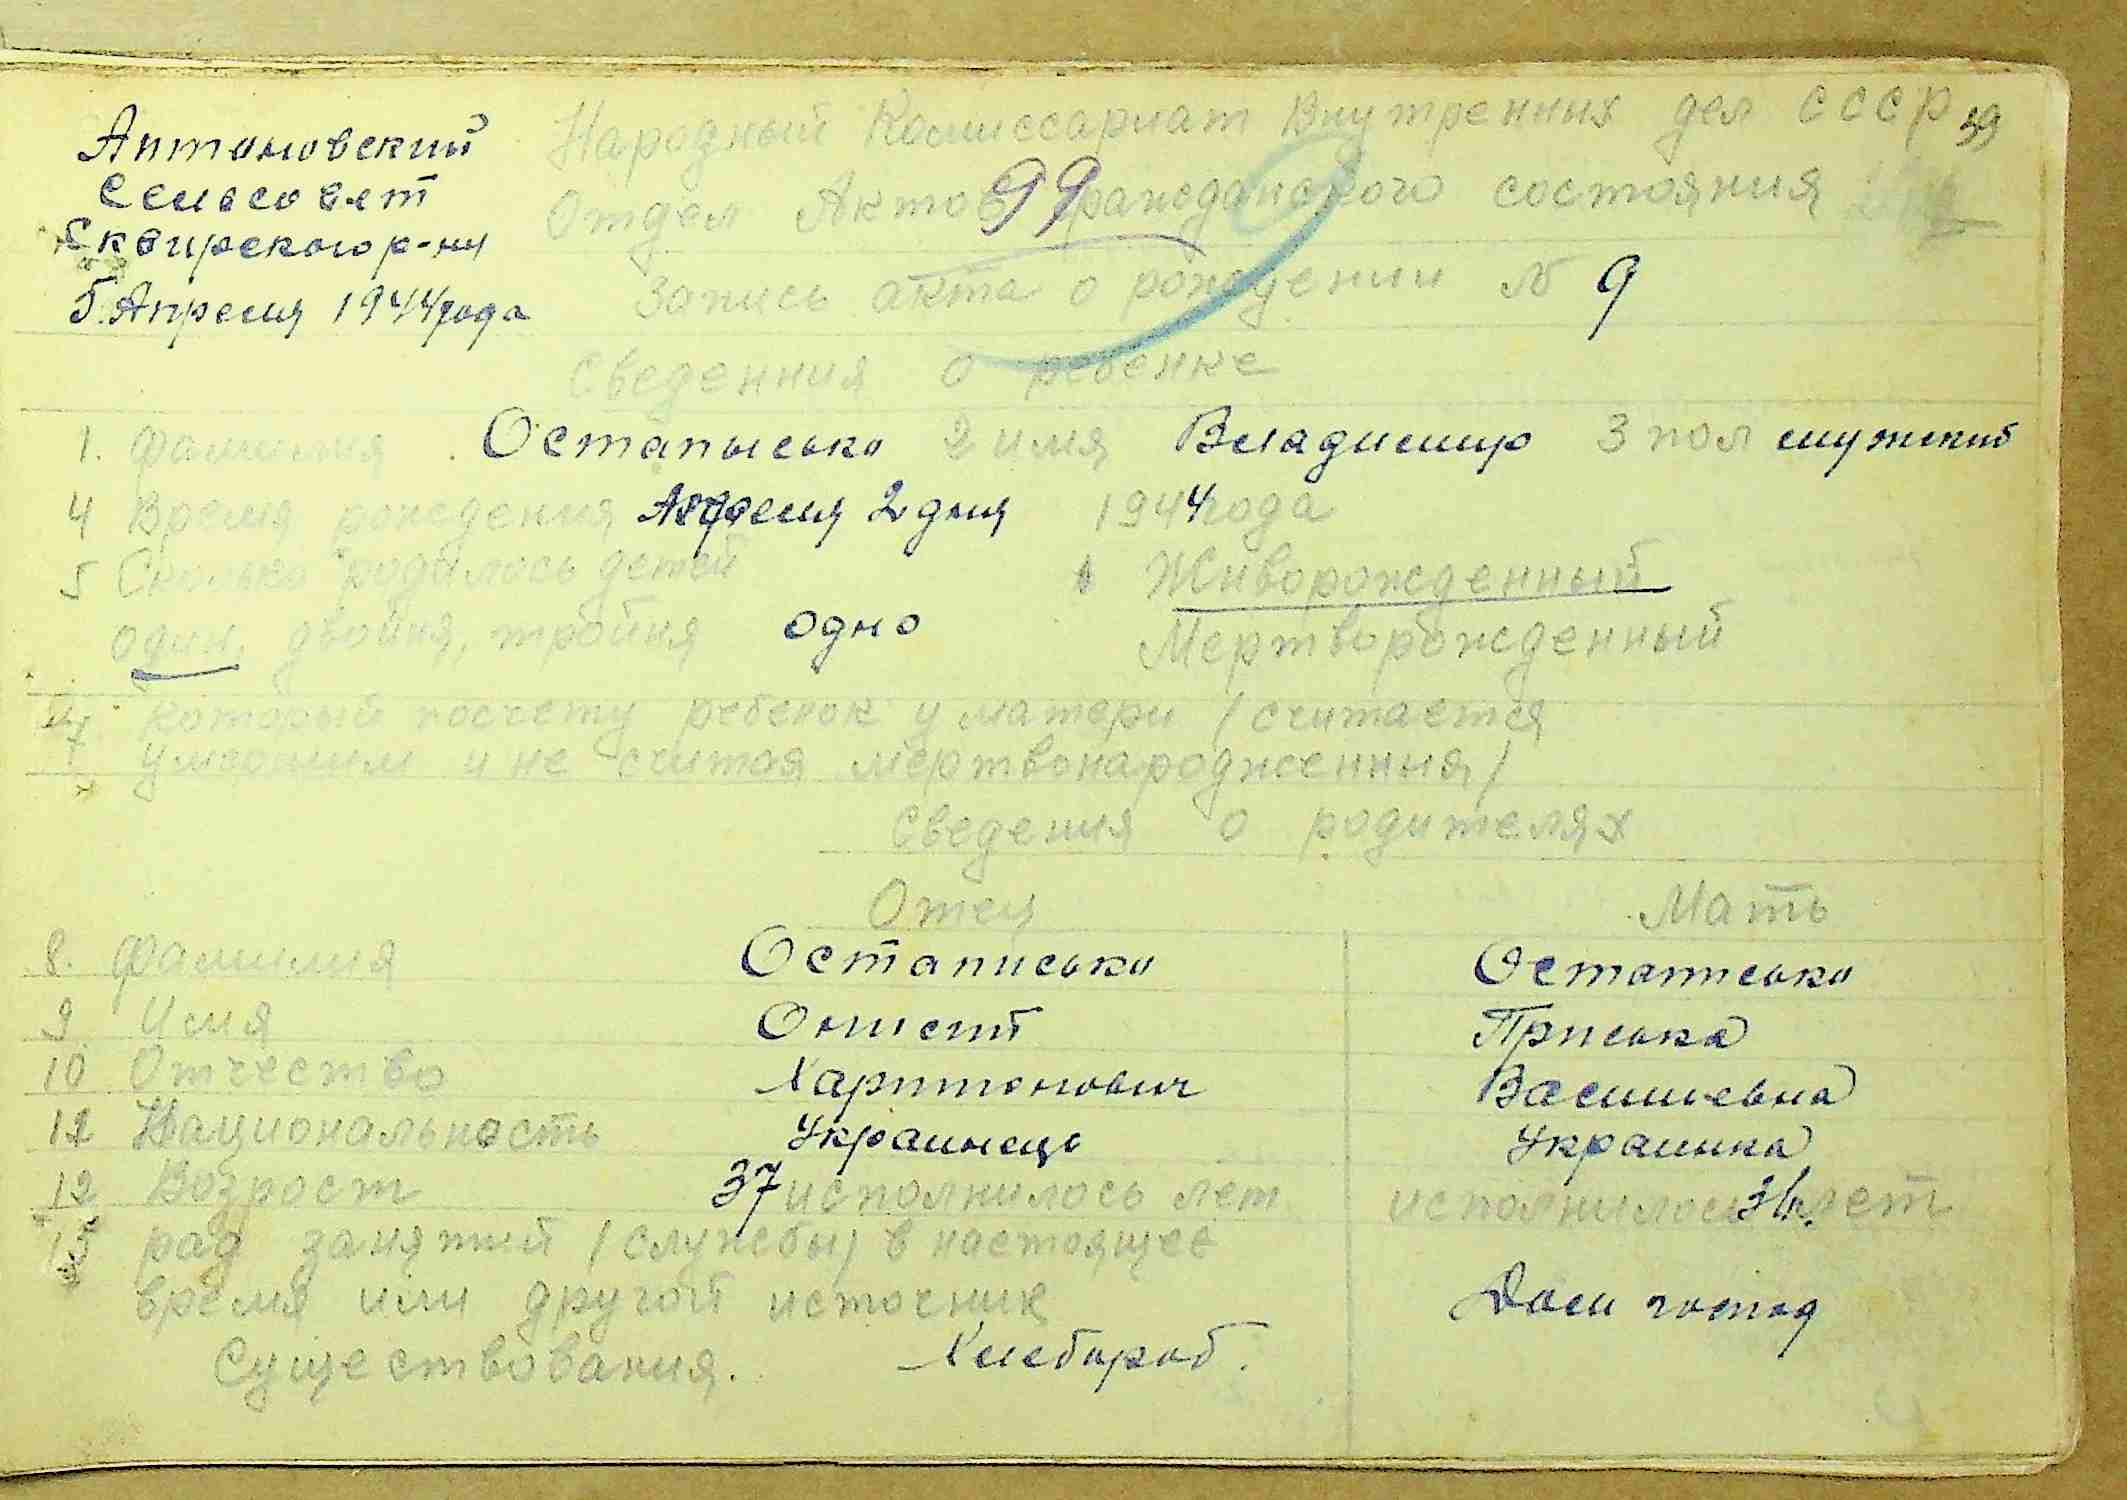 Антоновский
Сельсовет
Сквирского р-ну
5 Апреля 1944 года
Народный Комиссариат Внутренних дел СССР 39
Отдел Актов Гражданского состояния
99
Запись акта о рождении № 9
Сведенния о ребенке
1. Фамилия Остапысько 2 имя Владимир 3 пол мужский
4 Время рождения Апреля 2 дня 1944 года
5 Сколько родилось детей Живорожденный
один, двойня, тройня одно Мертворожденный
7 Который посчету ребенок у матери / считается
умершим и не считая мертвонародженння /
Сведения о родителях
Отец Мать
8. Фамилия Остаписько Остаписько
9 Имя Онисип Приська
10 Отчество Харитонович Василевна
12 Национальность Украинець Украинка
12 Возрост 37 исполнилось лет исполнилось 34 лет
13 рад занятий / службы / в настоящее
время или другой источник Дом господ
Существования. Хлебороб.